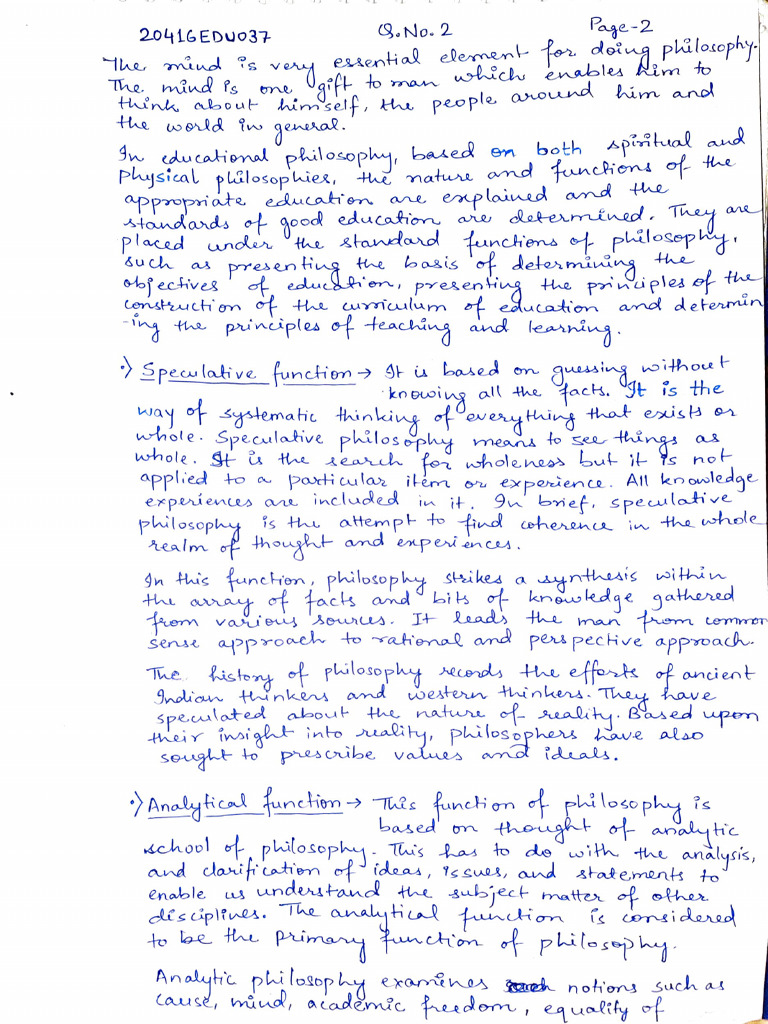 20416EDU037 Q.No. 2 Page-2
The mind is very essential element for doing philosophy.
The mind is one gift to man which enables him to
think about himself, the people around him and
the world in general.
In educational philosophy, based on both spiritual and
physical philosophies, the nature and functions of the
appropriate education are explained and the
standards of good education are determined. They are
placed under the standard functions of philosophy,
such as presenting the basis of determining the
objectives of education, presenting the principles of the
construction of the curriculum of education and determin
-ing the principles of teaching and learning.
•) Speculative function → It is based on guessing without
knowing all the facts. It is the
way of systematic thinking of everything that exists or
whole. Speculative philosophy means to see things as
whole. It is the search for wholeness but it is not
applied to a particular item or experience. All knowledge
experiences are included in it. In brief, speculative
philosophy is the attempt to find coherence in the whole
realm of thought and experiences.
In this function, philosophy strikes a synthesis within
the array of facts and bits of knowledge gathered
from various sources. It leads the man from common
sense approach to rational and perspective approach.
The history of philosophy records the efforts of ancient
Indian thinkers and western thinkers. They have
speculated about the nature of reality. Based upon
their insight into reality, philosophers have also
sought to prescribe values and ideals.
•) Analytical function → This function of philosophy is
based on thought of analytic
school of philosophy. This has to do with the analysis,
and clarification of ideas, issues, and statements to
enable us understand the subject matter of other
disciplines. The analytical function is considered
to be the primary function of philosophy.
Analytic philosophy examines notions such as
cause, mind, academic freedom, equality of